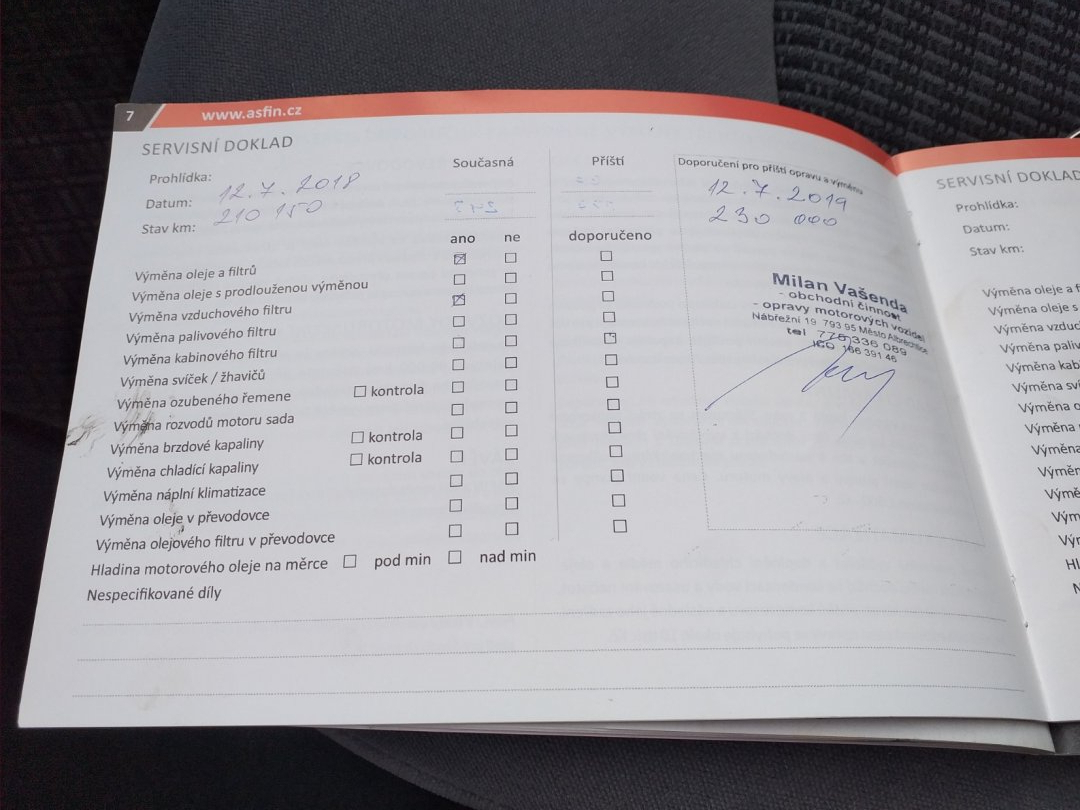 7 www.asfin.cz
SERVISNÍ DOKLAD
Současná Příští
Prohlídka:
Datum: 12.7.2018
Stav km: 210 150
ano ne doporučeno
Výměna oleje a filtrů
Výměna oleje s prodlouženou výměnou
Výměna vzduchového filtru
Výměna palivového filtru
Výměna kabinového filtru
Výměna svíček / žhavičů
Výměna ozubeného řemene kontrola
Výměna rozvodů motoru sada
Výměna brzdové kapaliny kontrola
Výměna chladící kapaliny kontrola
Výměna náplní klimatizace
Výměna oleje v převodovce
Výměna olejového filtru v převodovce
Hladina motorového oleje na měrce pod min nad min
Nespecifikované díly
Doporučení pro příští opravu a výměnu
12.7.2019
230 000
Milan Vašenda
- obchodní činnost
- opravy motorových vozidel
Nábřežní 19, 793 95 Město Albrechtice
tel 775 336 089
IČO 166 391 46
SERVISNÍ DOKLAD
Prohlídka:
Datum:
Stav km:
Výměna oleje a f
Výměna oleje s
Výměna vzduc
Výměna paliv
Výměna kab
Výměna sví
Výměna o
Výměna
Výměna
Výměn
Výmě
Vým
Výr
Hl
N